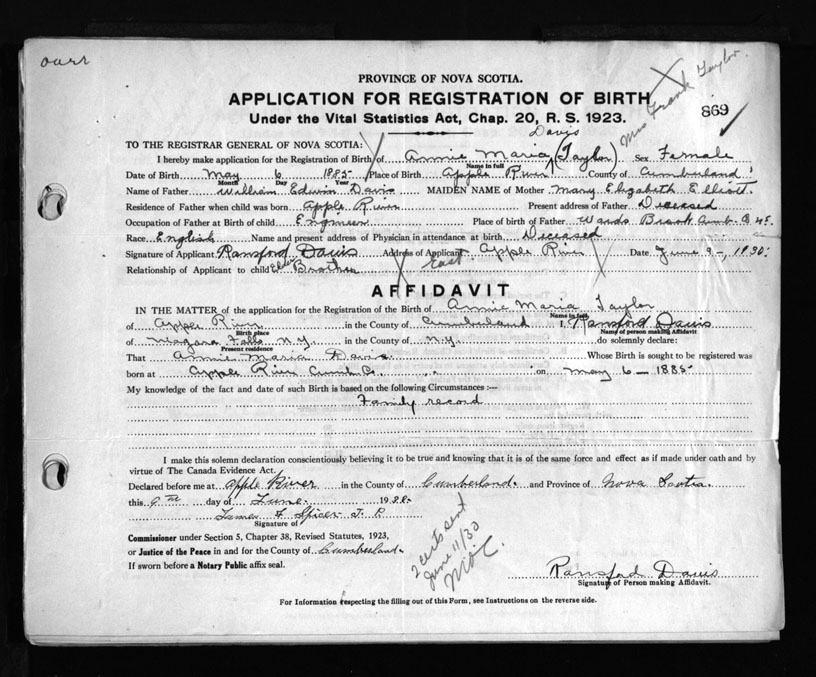 PROVINCE OF NOVA SCOTIA.
Mrs Frank Taylor.
APPLICATION FOR REGISTRATION OF BIRTH
869
Under the Vital Statistics Act, Chap. 20, R. S. 1923.
Davis
TO THE REGISTRAR GENERAL OF NOVA SCOTIA:
I hereby make application for the Registration of Birth of Annie Maria (Taylor) Sex Female
Name in full
Date of Birth May 6 1885 Place of Birth Apple River County of Cumberland
Month Day Year
Name of Father William Edwin Davis MAIDEN NAME of Mother Mary Elizabeth Elliott.
Residence of Father when child was born Apple River Present address of Father Deceased
Occupation of Father at Birth of child Engineer Place of birth of Father Wards Brook Cumb.
Race English Name and present address of Physician in attendance at birth Deceased
Signature of Applicant Ransford Davis Address of Applicant East Apple River Date June 9 - 1930.
Relationship of Applicant to child Elder Brother
AFFIDAVIT
IN THE MATTER of the application for the Registration of the Birth of Annie Maria Taylor
Name in full
of Apple River in the County of Cumberland I, Ransford Davis
Birth place Name of person making Affidavit
of Niagara Falls N.Y. in the County of N.Y. do solemnly declare:
Present residence
That Annie Maria Davis Whose Birth is sought to be registered was
born at Apple River Cumb. Co. on May 6 - 1885
My knowledge of the fact and date of such Birth is based on the following Circumstances :—
Family record
I make this solemn declaration conscientiously believing it to be true and knowing that it is of the same force and effect as if made under oath and by
virtue of The Canada Evidence Act.
Declared before me at Apple River in the County of Cumberland. and Province of Nova Scotia.
this 9th day of June. 1930.
James F Spicer J. P.
Signature of
Commissioner under Section 5, Chapter 38, Revised Statutes, 1923,
or Justice of the Peace in and for the County of Cumberland.
If sworn before a Notary Public affix seal.
2 certs sent
June 11/30
Ransford Davis
Signature of Person making Affidavit.
For Information respecting the filling out of this Form, see Instructions on the reverse side.